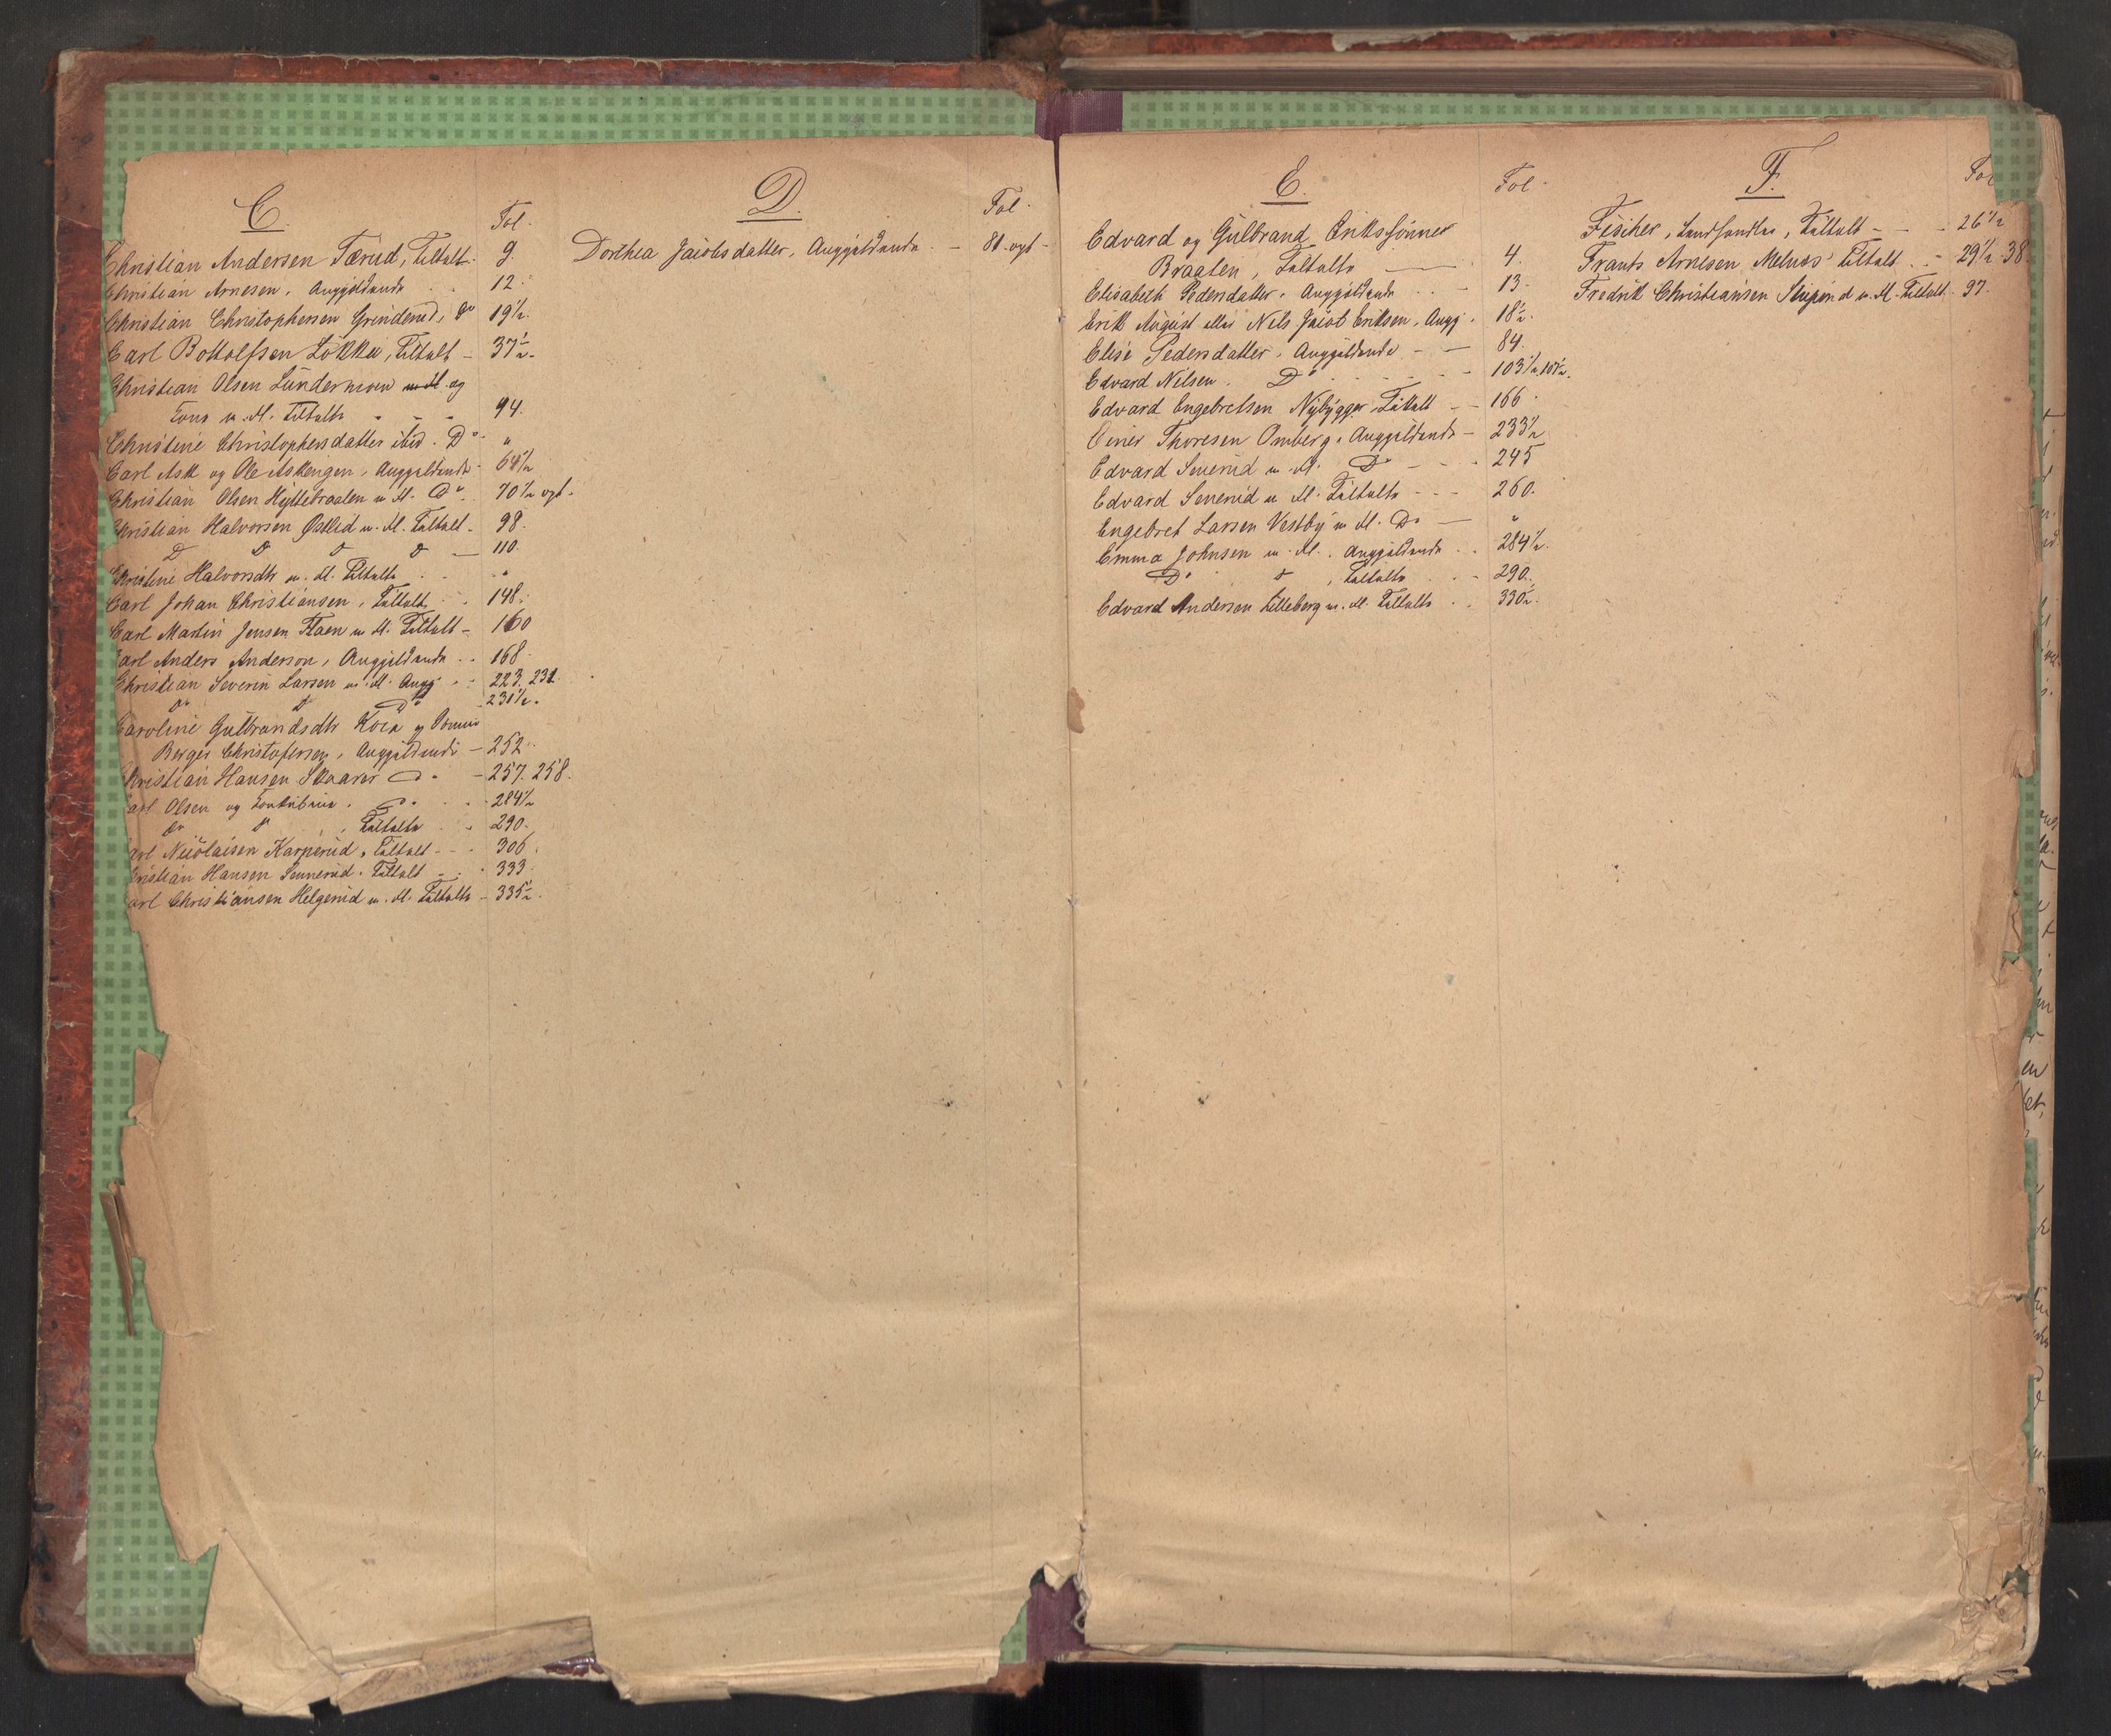 C.
Fol.
Christian Andersen Tærud, Tiltalt. 9.
Christian Arnesen, Anggjældende 12.
Christian Christophersen Grinderud, Do 19½.
Carl Bottolfsen Løkka, Tiltalt 37½.
Christian Olsen Lundermoen m. Fl. og
Kone m. Fl. Tiltalte 94.
Christine Christophersdatter ibid. Do "
Carl Ask og Ole Askengen, Anggjældende 64½
Christian Olsen Hyttebraaten m. Fl. Do 70½ ogf.
Christian Halvorsen Østlid m. Fl. Tiltalt 98.
D D D D 110.
Christine Halvorsdtr m. Fl. Tiltalte "
Carl Johan Christiansen, Tiltalt 148.
Carl Martin Jensen Flaen m. Fl. Tiltalt 160
Carl Anders Anderson, Anggjældende 168
Christian Severin Larsen m. Fl. Angg. 223. 231.
Do D Do 231½.
Caroline Gulbrandsdtr og
Berger Christofersen, Anggjældende 252
Christian Hansen Skaarer Do 257. 258.
Carl Olsen og Do 284½
Do D, Tiltalte 290.
Carl Nicolaisen Karperud, Tiltalt 306.
Christian Hansen Sennerud, Tiltalt 333
Carl Christiansen Helgerud m. Fl. Tiltalte 335½.
D.
Fol.
Dorthea Jacobsdatter, Anggjældende 81 ogf
E.
Fol.
Edvard og Gulbrand Erikssønner
Braaten, Tiltalte 4.
Elisabeth Pedersdatter, Anggjældende 13.
Erik August eller Nils Jacob Eriksen, Angg. 18½.
Elise Pedersdatter, Anggjældende 84.
Edvard Nilsen. Do 103½. 107½.
Edvard Engebretsen Nybygger, Tiltalt 166
Einer Thoresen Omberg, Anggjældende 233½
Edvard Senerud m. Fl. Do 245
Edvard Senerud m. Fl. Tiltalte 260.
Engebret Larsen Vestby m. Fl. Do "
Emma Johnsen m. Fl., Anggjældende 284½.
Do D, Tiltalte 290.
Edvard Andersen Lilleberg m. Fl. Tiltalte 330½.
F.
Fol
Fischer, Landhandler, Tiltalt 26½
Frants Arnesen Melnæs Tiltalt 29½. 38
Fredrik Christiansen m. Fl. Tiltalt. 97.